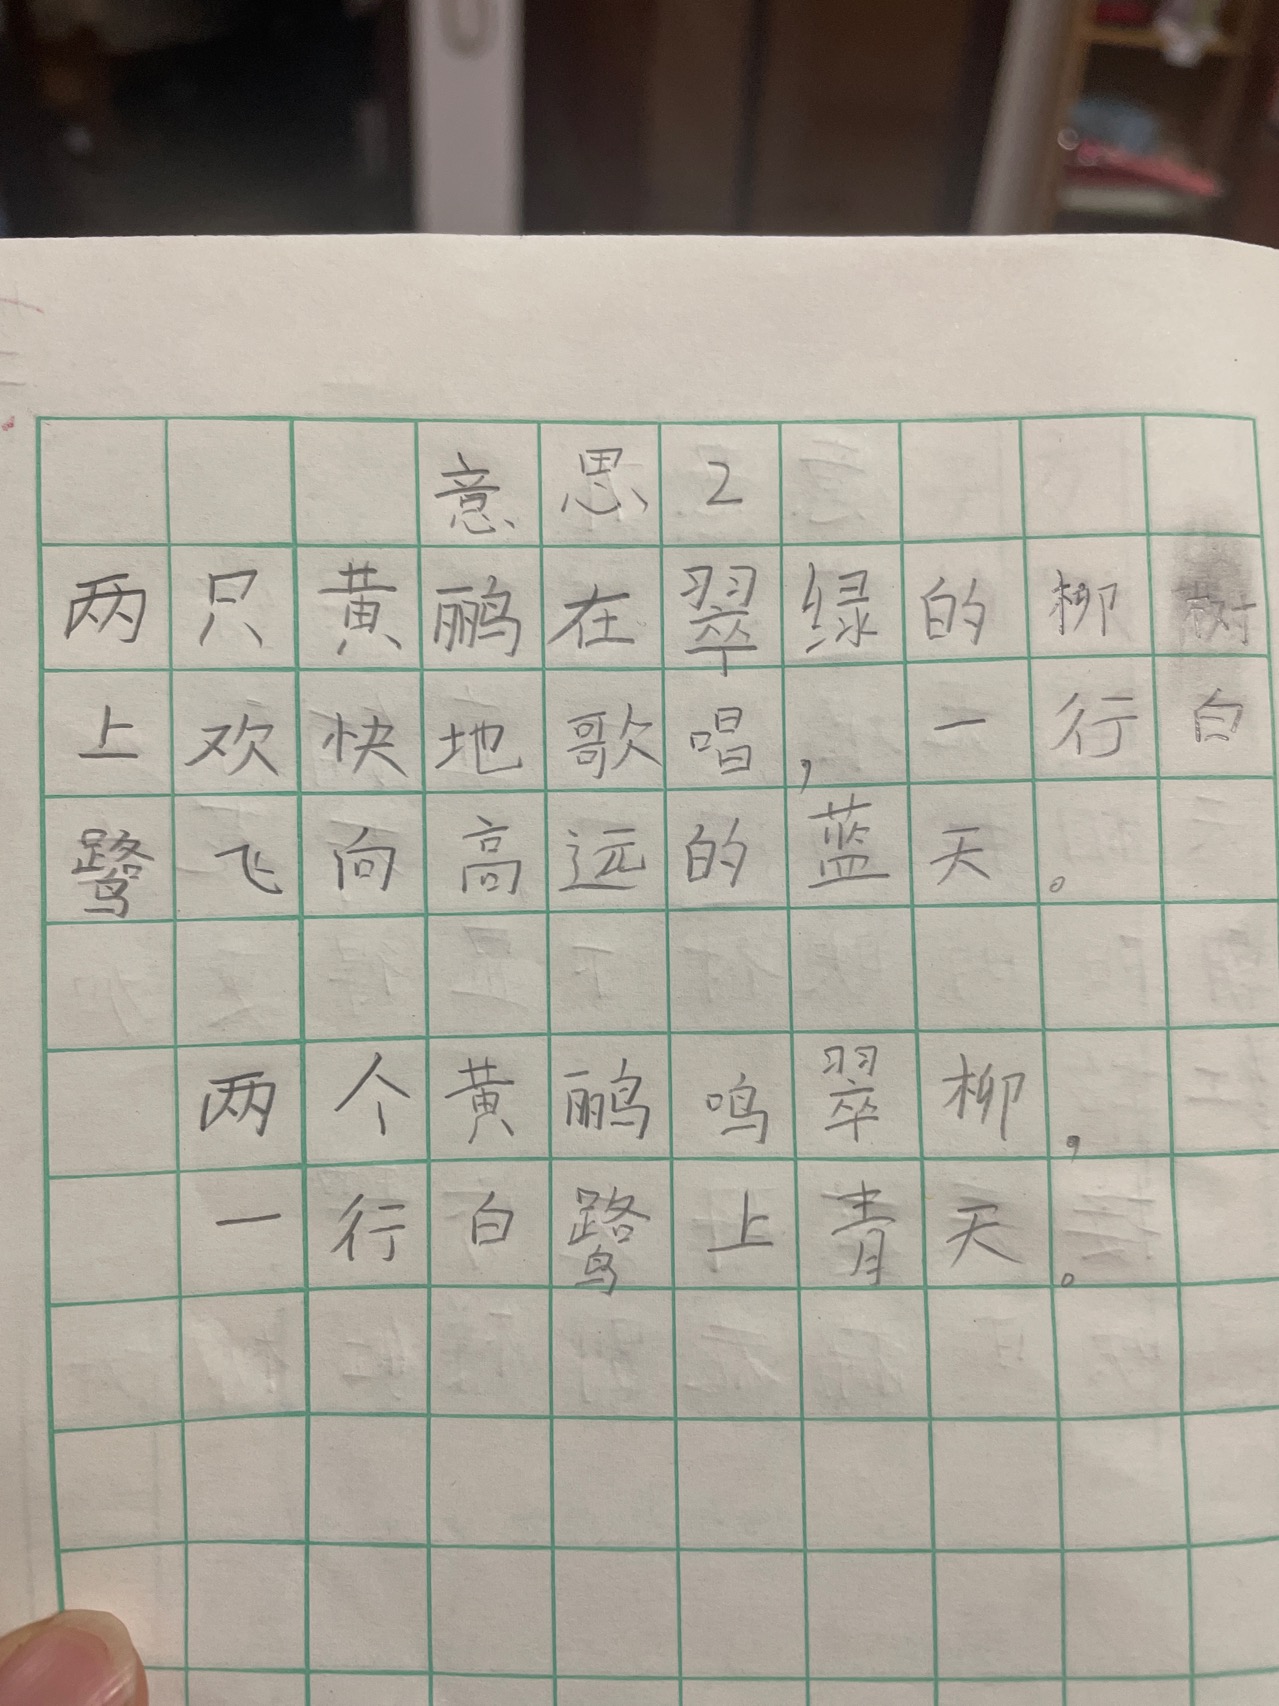 意思2
两只黄鹂在翠绿的柳树
上欢快地歌唱，一行白
鹭飞向高远的蓝天。
两个黄鹂鸣翠柳，
一行白鹭上青天。